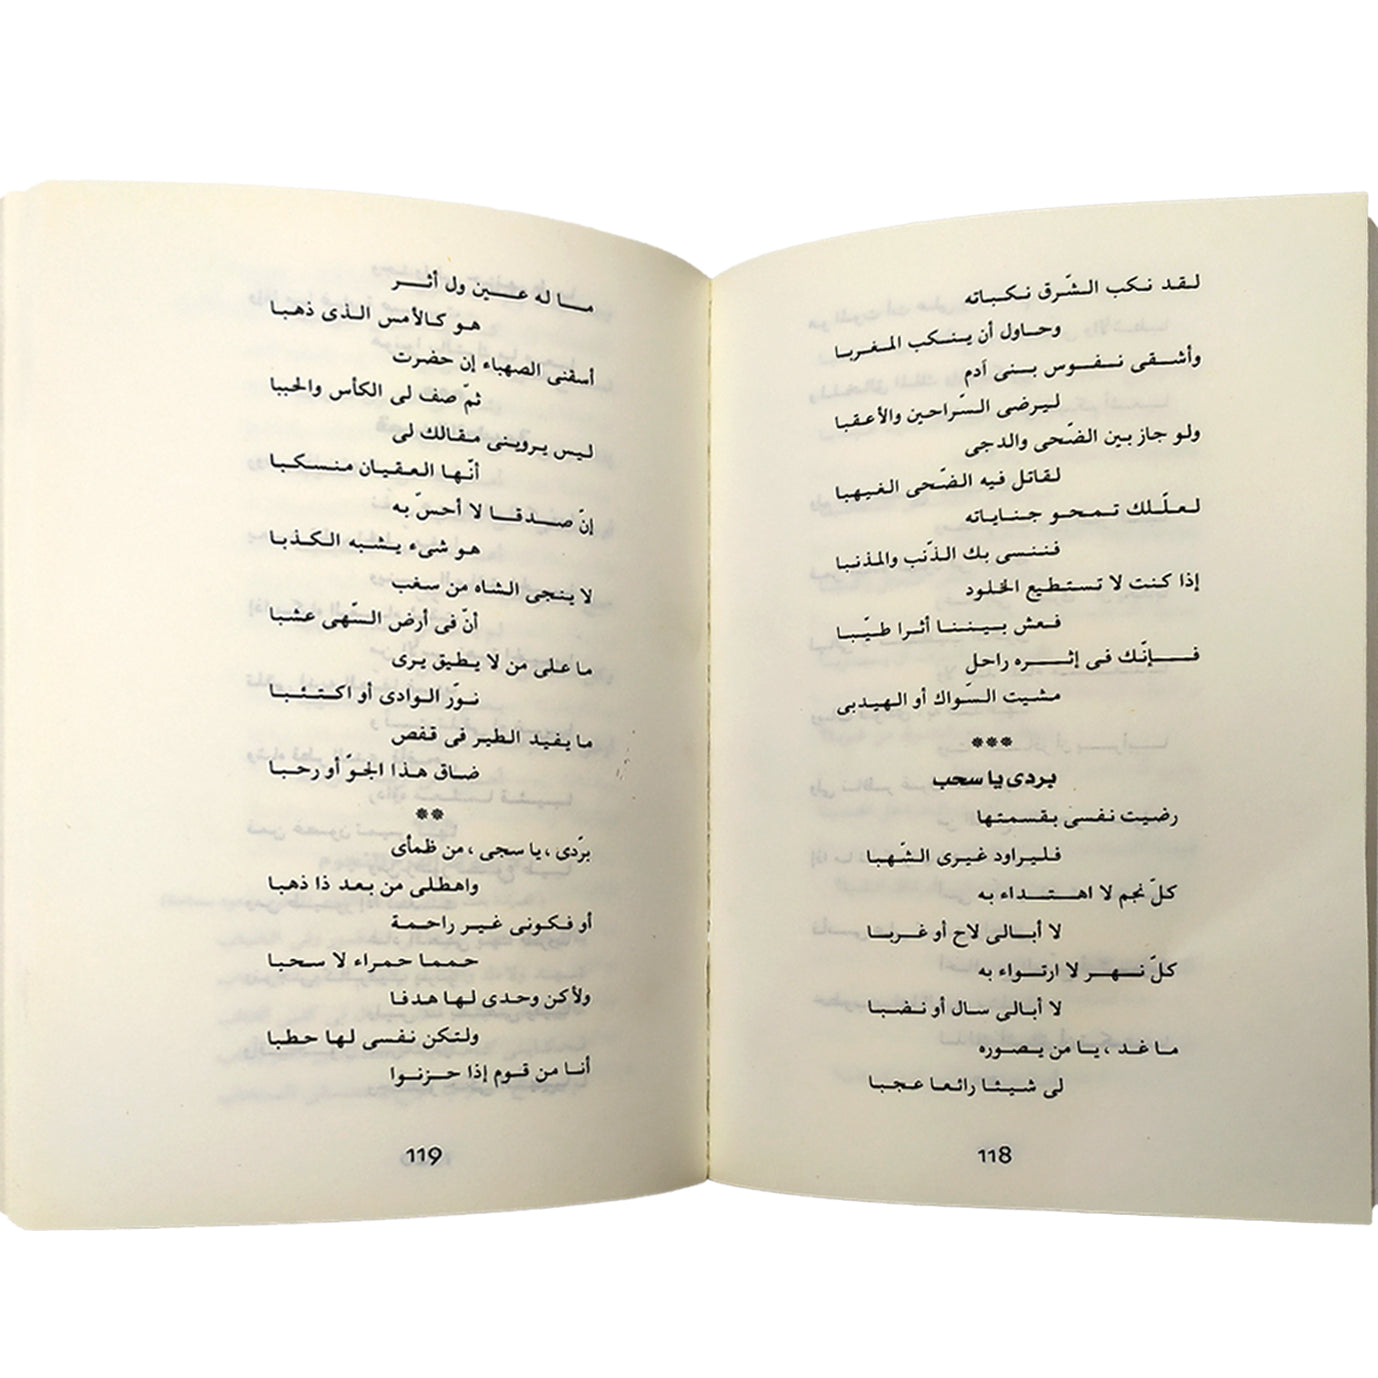 لقد نكب الشّرق نكباته
وحاول أن ينكب المغربا
وأشقى نفوس بنى آدم
ليرضى السّراحين والأعقبا
ولو جاز بين الضّحى والدجى
لقاتل فيه الضّحى الغيهبا
لعلّلك تمحو جناياته
فننسى بك الذّنب والمذنبا
إذا كنت لا تستطيع الخلود
فعش بيننا أثرا طيّبا
فإنّك فى إثره راحل
مشيت السّواك أو الهيدبى
***
بردى يا سحب
رضيت نفسى بقسمتها
فليراود غيرى الشّهبا
كلّ نجم لا اهتداء به
لا أبالى لاح أو غربا
كلّ نهر لا ارتواء به
لا أبالى سال أو نضبا
ما غد ، يا من يصوره
لى شيئا رائعا عجبا
118
ما له عين ول أثر
هو كالأمس الذى ذهبا
أسقنى الصهباء إن حضرت
ثمّ صف لى الكأس والحببا
ليس يروينى مقالك لى
أنّها العقيان منسكبا
إنّ صدقا لا أحسّ به
هو شىء يشبه الكذبا
لا ينجى الشاه من سغب
أنّ فى أرض السّهى عشبا
ما على من لا يطيق يرى
نوّر الوادى أو اكتئبا
ما يفيد الطير فى قفص
ضاق هذا الجوّ أو رحبا
**
برّدى ، يا سجى ، من ظمأى
واهطلى من بعد ذا ذهبا
أو فكونى غير راحمة
حمما حمراء لا سحبا
ولأكن وحدى لها هدفا
ولتكن نفسى لها حطبا
أنا من قوم إذا حزنوا
119